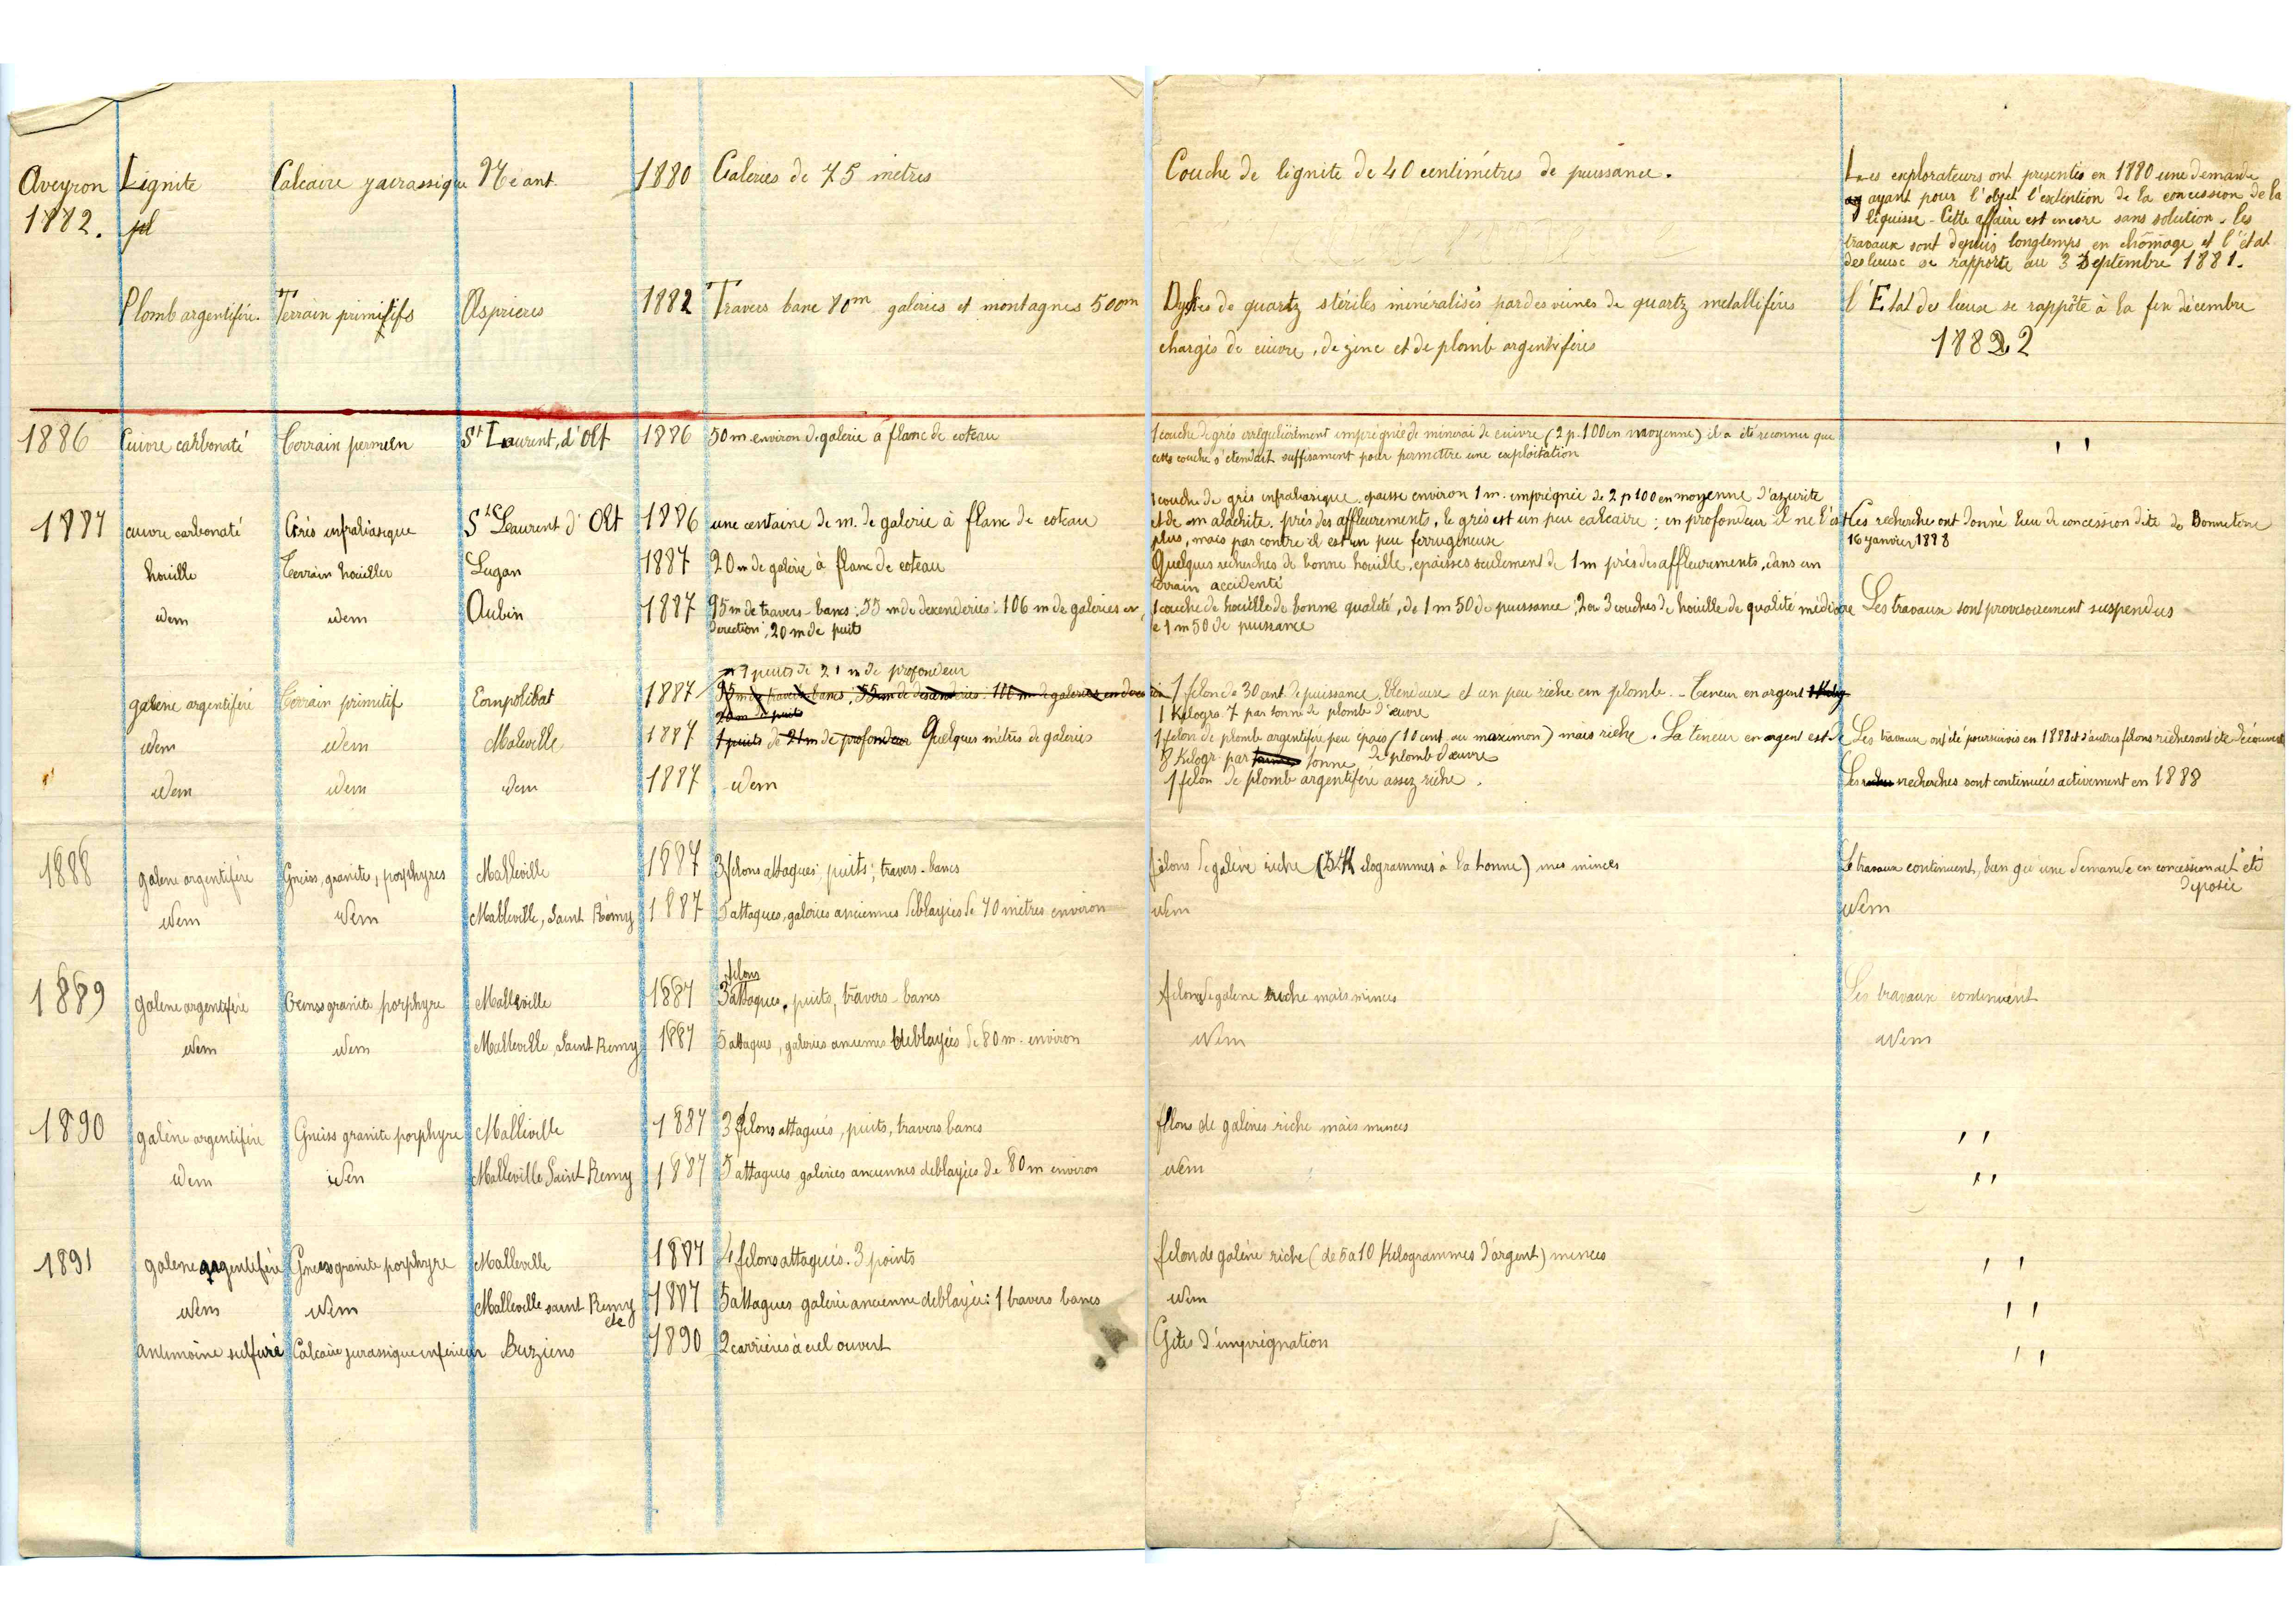 Aveyron Lignite Calcaire yurassique Néant. 1880 Galeries de 75 mètres Couche de lignite de 40 centimètres de puissance. Les explorateurs ont présentés en 1880 une demande
ayant pour l'objet l'extention de la concession de la
1882. Liquisse - Cette affaire est encore sans solution. les
travaux sont depuis longtemps en chômage et l'état
des lieux se rapporte au 3 Septembre 1881.
Plomb argentifère. Terrain primitifs Asprieres 1882 Travers banc 80m galeries et montagnes 500m Dykes de quartz stériles minéralisés par des veines de quartz metallifères l'Etat des lieux se rappôte à la fin décembre
chargés de cuivre, de zinc et de plomb argentifères 1882
1886 Cuivre carbonaté Terrain permien St Laurent, d'Olt 1886 50 m environ de galerie à flanc de coteau 1 couche de grès irrégulièrement imprégnée de minerai de cuivre (2 p. 100 en moyenne) il a été reconnu que " "
cette couche s'étendait suffisament pour permettre une exploitation
1 couche de grès infraliasique epaisse environ 1 m. imprégnée de 2 p 100 en moyenne d'azurite
1887 cuivre carbonaté Grès infraliasique St Laurent d'Olt 1886 une centaine de m. de galerie à flanc de coteau et de malachite. près des affleurements, le grès est un peu calcaire; en profondeur il ne l'est Ces recherches ont donné lieu de concession dite de Bonneterre
plus, mais par contre il est un peu ferrugineuse 16 janvier 1888
houille Terrain houiller Lugan 1887 20 m de galerie à flanc de coteau Quelques recherches de bonne houille, epaisses seulement de 1 m près des affleurements, dans un
terrain accidenté
idem idem Aubin 1887 95 m de travers-bancs; 55 m de descenderies: 106 m de galeries en 1 couche de houille de bonne qualité, de 1 m 50 de puissance; 2 ou 3 couches de houille de qualité médiocre Les travaux sont provisoirement suspendus
direction; 20 m de puits de 1 m 50 de puissance
1 puits de 21 m de profondeur
galene argentifère Terrain primitif Compolibat 1887 95 m de travers bancs; 55 m de descenderies: 106 m de galeries en direction 1 filon de 30 cent. de puissance, blendeuse et un peu riche em plomb. - Teneur en argent
20 m de puits 1 Kilogr. 7 par tonne de plomb d'œuvre
idem idem Maleville 1887 1 puits de 21 m de profondeur Quelques mètres de galeries 1 filon de plomb argentifère peu épais (10 cent au maximon) mais riche. La teneur en argent est de Les travaux ont été poursuivis en 1888 et d'autres filons riches ont été découverts
8 Kilogr. par tonne de plomb d'œuvre
idem idem idem 1887 idem 1 filon de plomb argentifère assez riche. Les recherches sont continuées activement en 1888
1888 galene argentifère Gneiss, granite, porphyres Malleville 1887 3 filons attaqués; puits; travers-bancs filons de galène riche (5 Kilogrammes à la tonne) mes minces Le travaux continuent, bien que une demande en concession ait été
déposée
idem idem Malleville, Saint Rémy 1887 5 attaques, galeries anciennes déblayées de 70 mètres environ idem idem
filons
1889 galene argentifère Gneiss granite porphyre Malleville 1887 3 attaques, puits, travers-bancs filons de galene riche mais minces Les travaux continuent
idem idem Malleville, Saint Remy 1887 5 attaques, galeries anciennes déblayées de 80 m. environ idem idem
1890 galène argentifère Gneiss granite porphyre Malleville 1887 3 filons attaqués, puits, travers bancs filons de galènes riche mais minces " "
idem iden Malleville Saint Remy 1887 5 attaques galeries anciennes deblayées de 80 m environ idem " "
1891 galene argentifère Gneiss granite porphyre Malleville 1887 4 filons attaqués. 3 points filon de galène riche (de 5 à 10 Kilogrammes d'argent) minces " "
idem idem Malleville saint Remy 1887 5 attaques galerie ancienne deblayée: 1 travers bancs idem " "
etc
antimoine sulfuré Calcaire jurassique inférieur Buzeins 1890 2 carrières à ciel ouvert Gîtes d'imprégnation " "